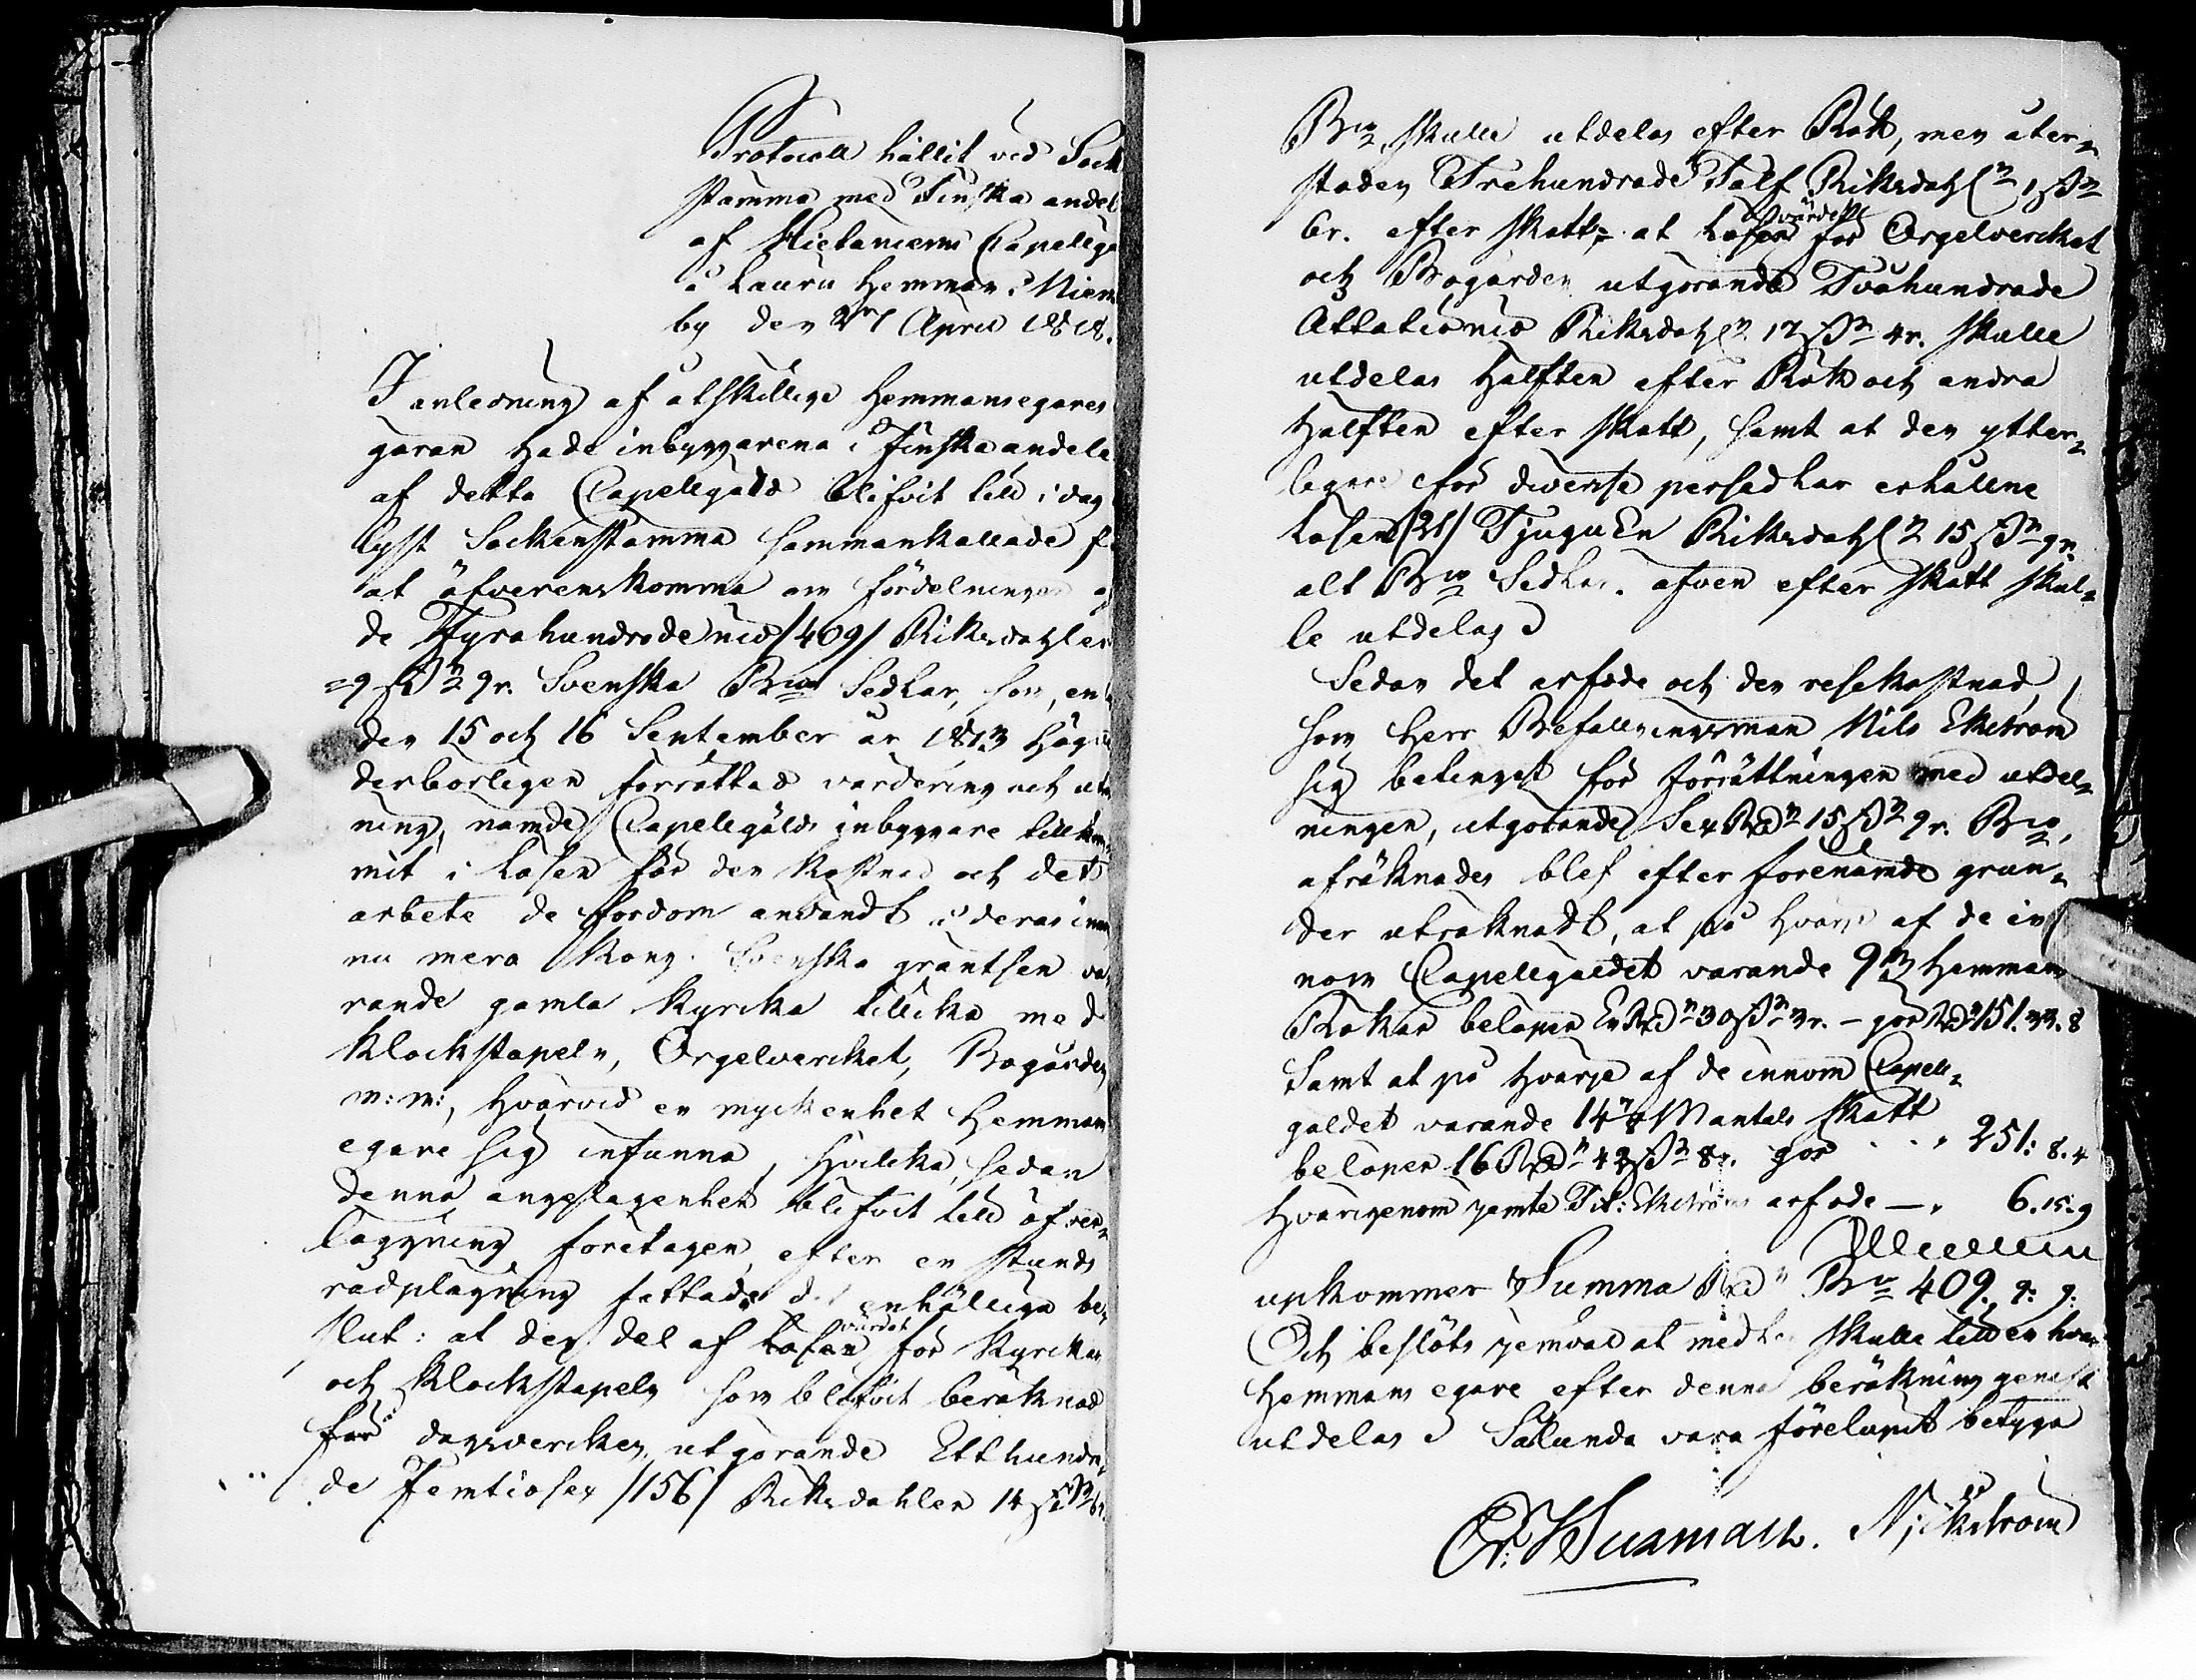 Protocoll hållit vid Sock
stämma med Finska andel
af Hietaniemi Capellgä
å Lauru Hemman i Niem
by den 27 April 1818.
I anledning af åtskillige Hemmansegares
garan hade inbyggarena i Finska andele
af detta Capellgäld blifvit till i dag
lyst Sockenstämma sammankallade f
at öfverenskomma om fördelningen af
de Fyrahundradenio /409/ Riksdahler
9 ß 9 r. Svenska Bco Sedlar, som, en
den 15 och 16 September år 1813 håg
derborligen förrättad värdering och
ning, nämde Capellgälds inbyggare tillkom
mit i Lösen för den kostnad och det
arbete de fordom användt i deras inom
nu mera Kong. Svenska gräntsen va
rande gamla Kyrcka tillika med
Klockstapeln, Orgelverket, Bogården
m: m:, hvarvid en myckenhet Hemmans
egare sig infunno, hvilcka, sedan
denna angelägenhet blifvit till öfver
läggning företagen, efter en stunds
rådplägning fattade det enhälliga be
slut: at den del af Lösen värdet för Kyrckan
och Klockstapeln som blifvit beräknad
för dagsvercken, utgörande Etthundra
de Femtiosex /156/ Riksdahler 14 ß 6 r.
Bco, skulle utdelas efter Rök, men åter
stoden Trehundrade Tolf Riksdahl 1 ß
6r. efter skatt; at Lösen värdet för Orgelvercket
och Bogården utgörande Tvåhundrade
Åttationio Riksdahl 17 ß 4 r. skulle
utdelas Hälften efter Rök och andra
Hälften efter skatt, samt at den ytter
ligare för diverse persedlar erhållne
Lösen /21/ Tjuguen Riksdahl 15 ß 9 r.
alt Bco Sedlar. äfven efter skatt skul
le utdelas
Sedan det arfode och den resekostnad,
som Herr Befallningsman Nils Ekström
sig betingat för förrättningen med utdel
ningen, utgörande Sex Rd 15 ß 9 r. Bco,
afräknades blef efter förenämde grun
der uträknadt, at på hvarje af de in
nom Capellgäldet varande 93 Hemmans
Rökar belöper En Rd 30 ß 3 r. – gör Rd 151. 33. 8
Samt at på hvarje af de innom Capell
gäldet varande 14 7/8 Mantals skatt
belöper 16 Rd 42 ß 8 r. gör 251: 8. 4
hvarigenom jemte Tit: Ekströms arfode — " 6. 15. 9
upkommer Summa Rd Bco 409. 9: 9:
Och beslöts jemväl at medlen skulle till en hvar
Hemmans egare efter denna beräkning genast
utdelas Sålunda vara förelupit betyga
N: Ekström